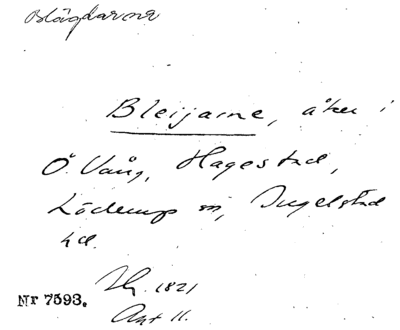 Blägdarne
Bleijarne, åker i
Ö. Vång, Hagestad,
Löderup sn, Ingelstad
hd.
Hg. 1821
Nr 7593.
Akt 11.